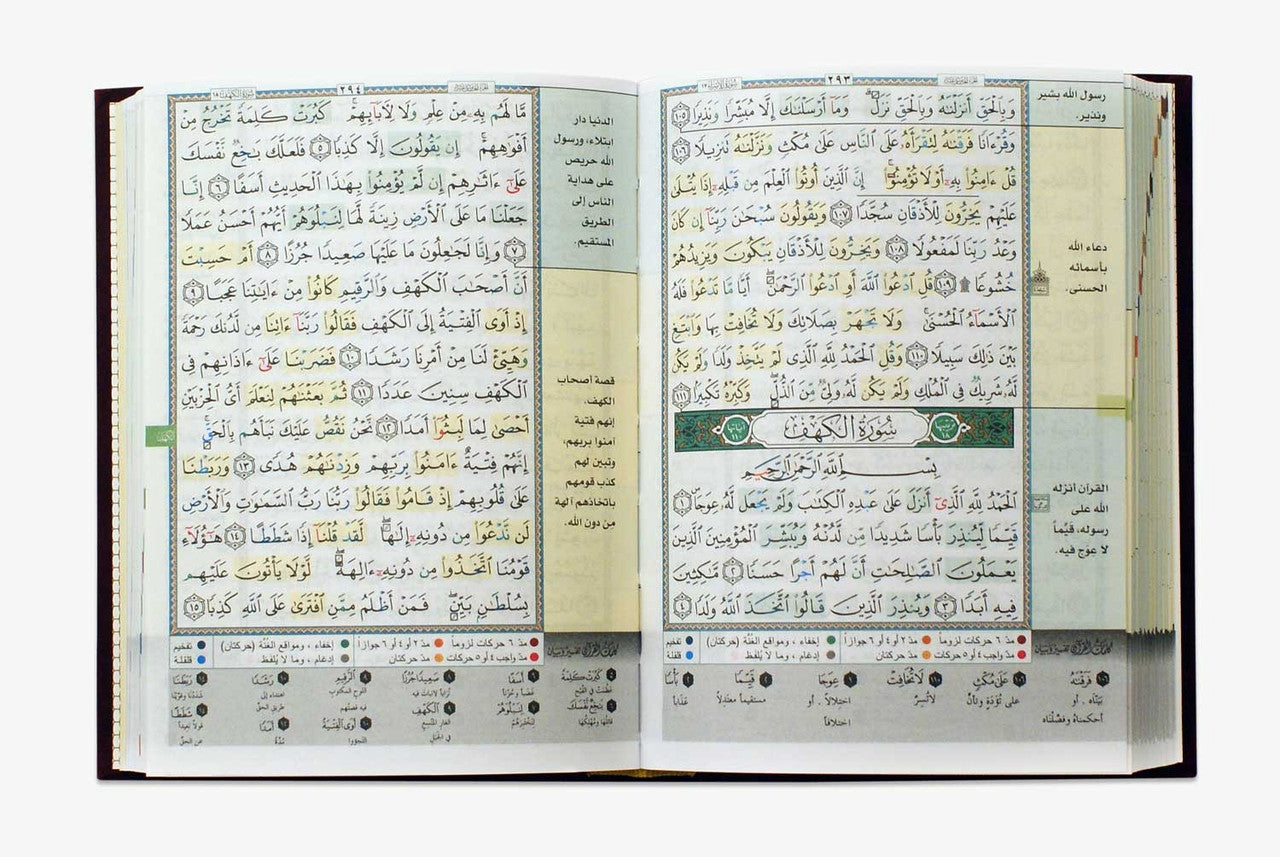 سورة الإسراء ١٧
٢٩٣
وَبِالْحَقِّ أَنزَلْنَٰهُ وَبِالْحَقِّ نَزَلَ ۗ وَمَآ أَرْسَلْنَٰكَ إِلَّا مُبَشِّرًا وَنَذِيرًا ١٠٥
وَقُرْءَانًا فَرَقْنَٰهُ لِتَقْرَأَهُۥ عَلَى النَّاسِ عَلَىٰ مُكْثٍ وَنَزَّلْنَٰهُ تَنزِيلًا ١٠٦
قُلْ ءَامِنُوا۟ بِهِۦٓ أَوْ لَا تُؤْمِنُوٓا۟ ۚ إِنَّ الَّذِينَ أُوتُوا۟ الْعِلْمَ مِن قَبْلِهِۦٓ إِذَا يُتْلَىٰ
عَلَيْهِمْ يَخِرُّونَ لِلْأَذْقَانِ سُجَّدًا ١٠٧ وَيَقُولُونَ سُبْحَٰنَ رَبِّنَآ إِن كَانَ
وَعْدُ رَبِّنَا لَمَفْعُولًا ١٠٨ وَيَخِرُّونَ لِلْأَذْقَانِ يَبْكُونَ وَيَزِيدُهُمْ
خُشُوعًا ۩ ١٠٩ قُلِ ادْعُوا۟ اللَّهَ أَوِ ادْعُوا۟ الرَّحْمَٰنَ ۖ أَيًّا مَّا تَدْعُوا۟ فَلَهُ
الْأَسْمَآءُ الْحُسْنَىٰ ۚ وَلَا تَجْهَرْ بِصَلَاتِكَ وَلَا تُخَافِتْ بِهَا وَابْتَغِ
بَيْنَ ذَٰلِكَ سَبِيلًا ١١٠ وَقُلِ الْحَمْدُ لِلَّهِ الَّذِى لَمْ يَتَّخِذْ وَلَدًا وَلَمْ يَكُن
لَّهُۥ شَرِيكٌ فِى الْمُلْكِ وَلَمْ يَكُن لَّهُۥ وَلِىٌّ مِّنَ الذُّلِّ ۖ وَكَبِّرْهُ تَكْبِيرًا ١١١
ترتيبها ١٨
سُورَةُ الكَهْفِ
آياتها ١١٠
بِسْمِ اللَّهِ الرَّحْمَٰنِ الرَّحِيمِ
الْحَمْدُ لِلَّهِ الَّذِىٓ أَنزَلَ عَلَىٰ عَبْدِهِ الْكِتَٰبَ وَلَمْ يَجْعَل لَّهُۥ عِوَجَا ۜ ١
قَيِّمًا لِّيُنذِرَ بَأْسًا شَدِيدًا مِّن لَّدُنْهُ وَيُبَشِّرَ الْمُؤْمِنِينَ الَّذِينَ
يَعْمَلُونَ الصَّٰلِحَٰتِ أَنَّ لَهُمْ أَجْرًا حَسَنًا ٢ مَّٰكِثِينَ
فِيهِ أَبَدًا ٣ وَيُنذِرَ الَّذِينَ قَالُوا۟ اتَّخَذَ اللَّهُ وَلَدًا ٤
رسول الله بشير
ونذير.
دعاء الله
بأسمائه
الحسنى.
القرآن أنزله
الله على
رسوله، قيِّماً
لا عوج فيه.
مدّ ٦ حركات لزوماً مدّ ٢ أو ٤ أو ٦ جوازاً إخفاء ، ومواقع الغُنَّة (حركتان) تفخيم
مدّ واجب ٤ أو ٥ حركات مدّ حركتان إدغام ، وما لا يُلفَظ قلقلة
كلمات القرآن تفسير وبيان
١٠٦ فَرَقْنَاهُ
بيّنّاه . أو
أحكمناه وفصّلناه
١٠٦ عَلَى مُكْثٍ
على تُؤَدَةٍ وتأنٍّ
١١٠ لَا تُخَافِتْ
لا تُسِرّ
١ عِوَجَا
اختلالاً . أو
اختلافاً
٢ قَيِّمًا
مستقيماً معتدلاً
٢ بَأْسًا
عَذاباً
٢٩٤
سورة الكهف ١٨
مَّا لَهُم بِهِۦ مِنْ عِلْمٍ وَلَا لِآبَآئِهِمْ ۚ كَبُرَتْ كَلِمَةً تَخْرُجُ مِنْ
أَفْوَٰهِهِمْ ۚ إِن يَقُولُونَ إِلَّا كَذِبًا ٥ فَلَعَلَّكَ بَٰخِعٌ نَّفْسَكَ
عَلَىٰٓ ءَاثَٰرِهِمْ إِن لَّمْ يُؤْمِنُوا۟ بِهَٰذَا الْحَدِيثِ أَسَفًا ٦ إِنَّا
جَعَلْنَا مَا عَلَى الْأَرْضِ زِينَةً لَّهَا لِنَبْلُوَهُمْ أَيُّهُمْ أَحْسَنُ عَمَلًا
٧ وَإِنَّا لَجَٰعِلُونَ مَا عَلَيْهَا صَعِيدًا جُرُزًا ٨ أَمْ حَسِبْتَ
أَنَّ أَصْحَٰبَ الْكَهْفِ وَالرَّقِيمِ كَانُوا۟ مِنْ ءَايَٰتِنَا عَجَبًا ٩
إِذْ أَوَى الْفِتْيَةُ إِلَى الْكَهْفِ فَقَالُوا۟ رَبَّنَآ ءَاتِنَا مِن لَّدُنكَ رَحْمَةً
وَهَيِّئْ لَنَا مِنْ أَمْرِنَا رَشَدًا ١٠ فَضَرَبْنَا عَلَىٰٓ ءَاذَانِهِمْ فِى
الْكَهْفِ سِنِينَ عَدَدًا ١١ ثُمَّ بَعَثْنَٰهُمْ لِنَعْلَمَ أَىُّ الْحِزْبَيْنِ
أَحْصَىٰ لِمَا لَبِثُوٓا۟ أَمَدًا ١٢ نَّحْنُ نَقُصُّ عَلَيْكَ نَبَأَهُم بِالْحَقِّ ۚ
إِنَّهُمْ فِتْيَةٌ ءَامَنُوا۟ بِرَبِّهِمْ وَزِدْنَٰهُمْ هُدًى ١٣ وَرَبَطْنَا
عَلَىٰ قُلُوبِهِمْ إِذْ قَامُوا۟ فَقَالُوا۟ رَبُّنَا رَبُّ السَّمَٰوَٰتِ وَالْأَرْضِ
لَن نَّدْعُوَا۟ مِن دُونِهِۦٓ إِلَٰهًا ۖ لَّقَدْ قُلْنَآ إِذًا شَطَطًا ١٤ هَٰٓؤُلَآءِ
قَوْمُنَا اتَّخَذُوا۟ مِن دُونِهِۦٓ ءَالِهَةً ۖ لَّوْلَا يَأْتُونَ عَلَيْهِم
بِسُلْطَٰنٍۭ بَيِّنٍ ۖ فَمَنْ أَظْلَمُ مِمَّنِ افْتَرَىٰ عَلَى اللَّهِ كَذِبًا ١٥
الدنيا دار
ابتلاء، ورسول
الله حريص
على هداية
الناس إلى
الطريق
المستقيم.
قصة أصحاب
الكهف.
إنهم فتية
آمنوا بربهم،
وتبين لهم
كذب قومهم
باتخاذهم آلهة
من دون الله.
الكهف
مدّ ٦ حركات لزوماً مدّ ٢ أو ٤ أو ٦ جوازاً إخفاء ، ومواقع الغُنَّة (حركتان) تفخيم
مدّ واجب ٤ أو ٥ حركات مدّ حركتان إدغام ، وما لا يُلفَظ قلقلة
٥ كَبُرَتْ كَلِمَةً
عظمت في القبح
٦ بَاخِعٌ نَّفْسَكَ
قاتلها ومهلكها
٦ أَسَفًا
غضباً وحُزناً
٧ لِنَبْلُوَهُمْ
لنختبرهم
٨ صَعِيدًا جُرُزًا
تراباً لا نبات فيه
٩ الْكَهْفِ
الغار المتّسع
في الجبل
٩ الرَّقِيمِ
اللوح المكتوب
فيه قصتهم
١٠ أَوَى الْفِتْيَةُ
التجؤوا
١٠ رَشَدًا
اهتداء إلى
طريق الحقّ
١٢ أَمَدًا
مُدّة
١٤ رَبَطْنَا
شددنا وقوّينا
١٤ شَطَطًا
قولاً بعيداً
عن الحقّ